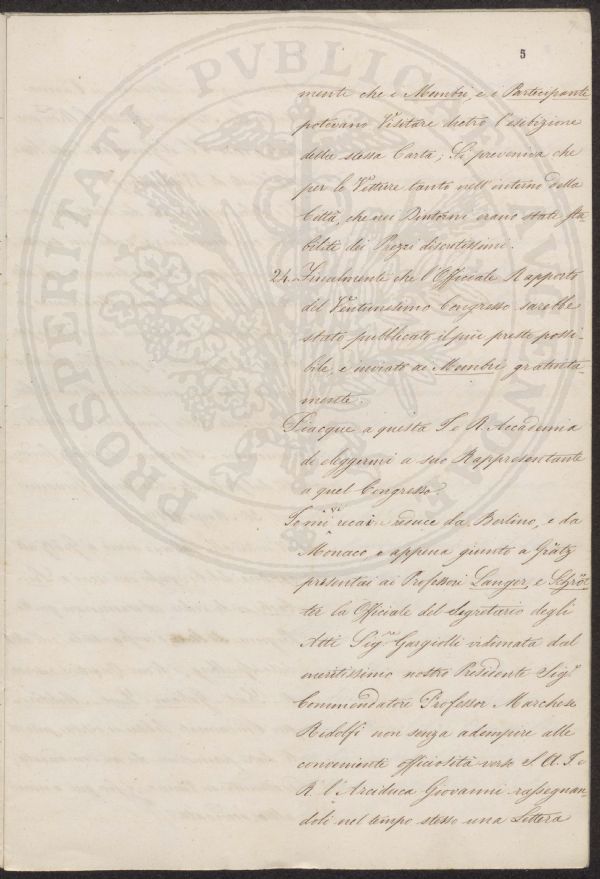 5
mente che i Membri, e i Participante
potevano Visitare dietro l'esibizione
delle stessa Carta; Si preveniva che
per le Vetture tanto nell'interni della
Città, che nei Dintorni erano stati Sta-
bilite dei Prezzi discretissimi.
24. Finalmente che l'Officiale Rapporto
del Ventunesimo Congresso sarebbe
stato pubblicato il più presto possi-
bile, e inviato ai Membri gratuita-
mente.
Piacque a questa I. e R. Accademia
di eleggermi a suo Rappresentante
a quel Congresso.
Io mi vi recai reduce da Berlino, e da
Monaco e appena giunto a Grätz
presentai ai Professori Langer, e Schröt-
ter la Officiale del Segretario degli
Atti Sigre Gargiolli vidimata dal
meritissimo nostro Presidente Sigre
Commendatore Professor Marchese
Ridolfi non senza adempire alle
conveniente officiosità verso S. A. I. e
R. l'Arciduca Giovanni rassegnan-
doli nel tempo stesso una Lettera
PROSPERITATI PVBLICAE AVGENDAE